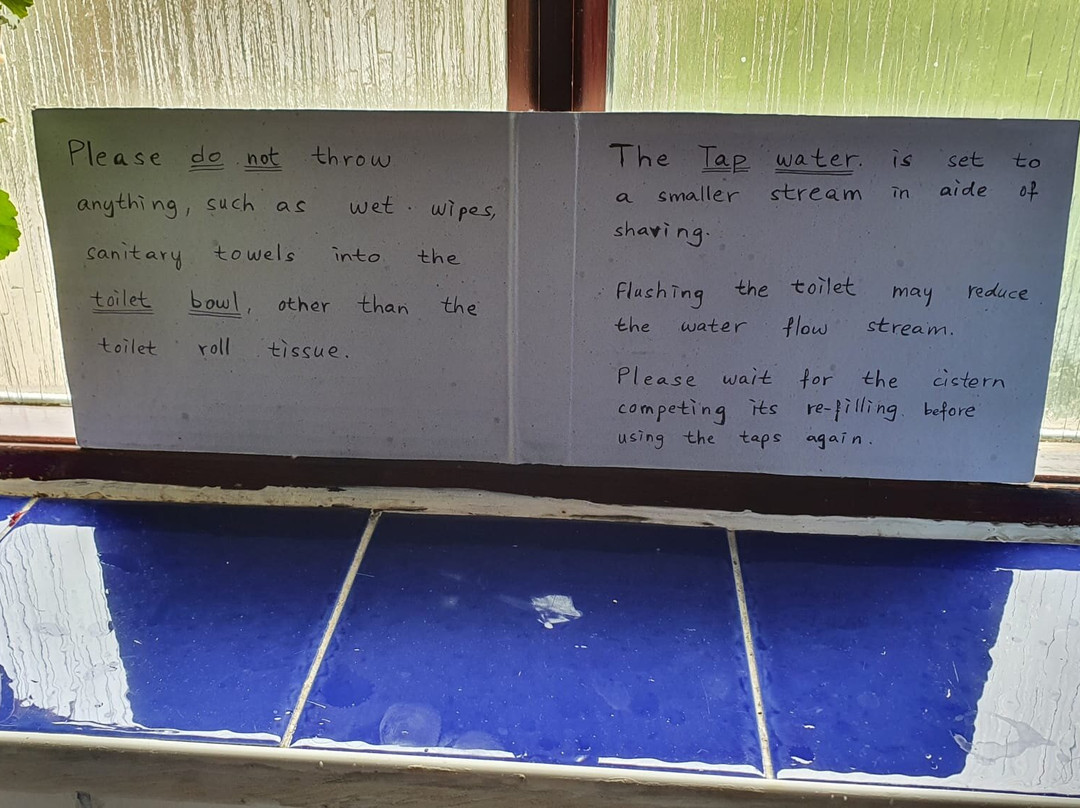 Please do not throw
anything, such as wet wipes,
sanitary towels into the
toilet bowl, other than the
toilet roll tissue.
The Tap water. is set to
a smaller stream in aide of
shaving.
Flushing the toilet may reduce
the water flow stream.
Please wait for the cistern
competing its re-filling before
using the taps again.